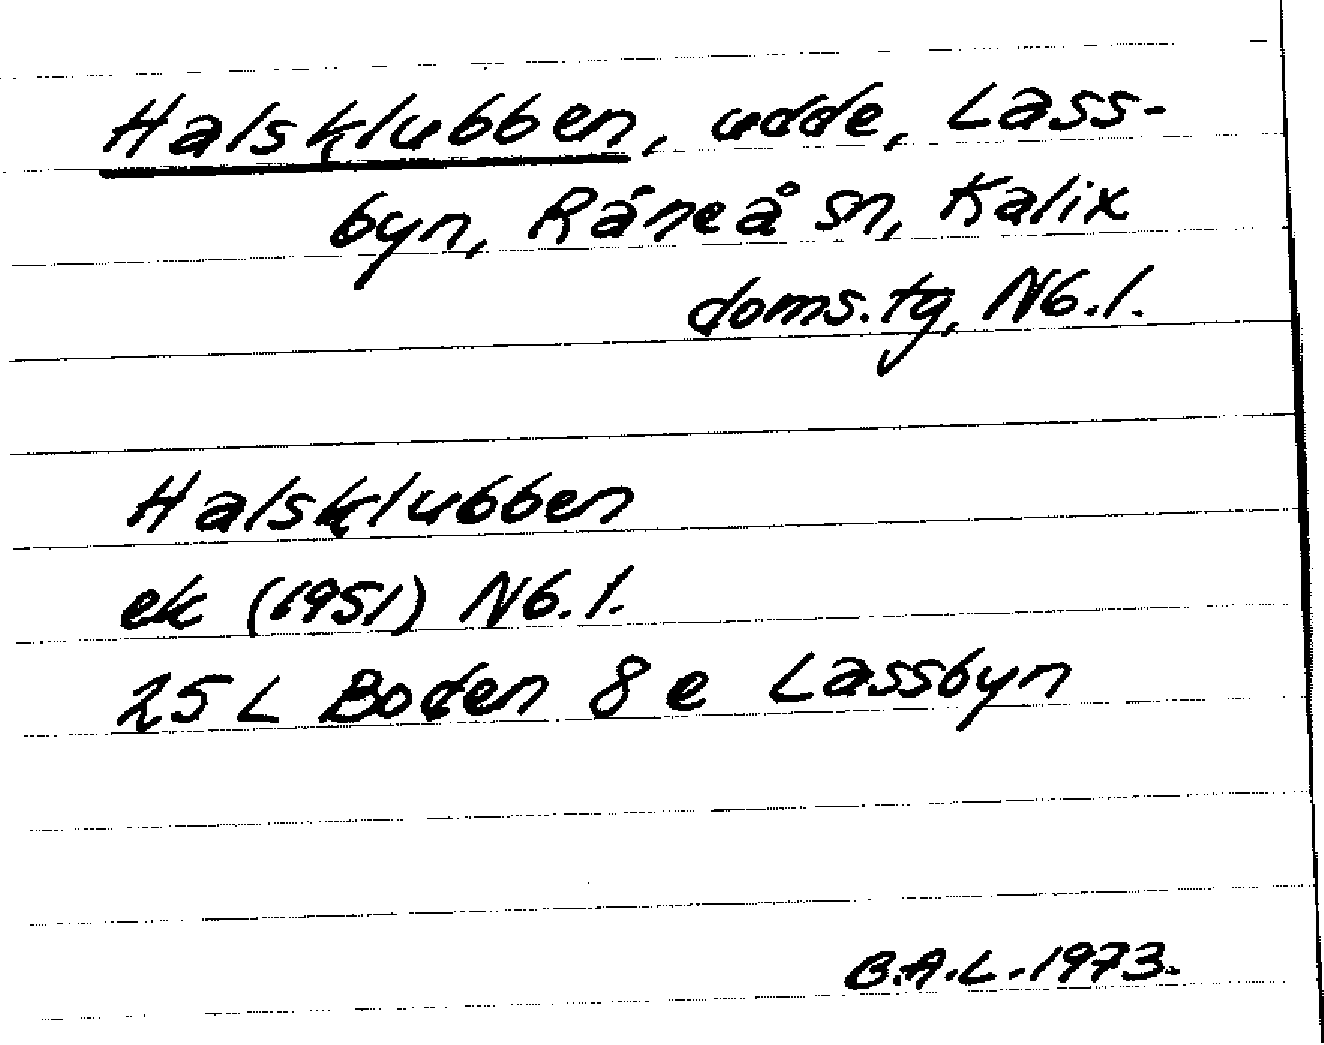 Halsklubben, udde, Lass-
byn, Råneå sn, Kalix
doms.tg, Nb.l.
Halsklubben
ek (1951) Nb.l.
25 L Boden 8 e Lassbyn
B.A.L. 1973.